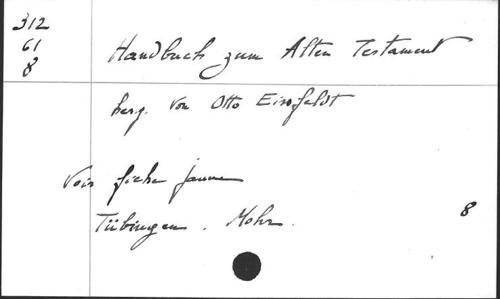 312
61
8
Handbuch zum Alten Testament
herg. von Otto Eissfeldt
Voir fiche jaune
Tübingen. Mohr.
8